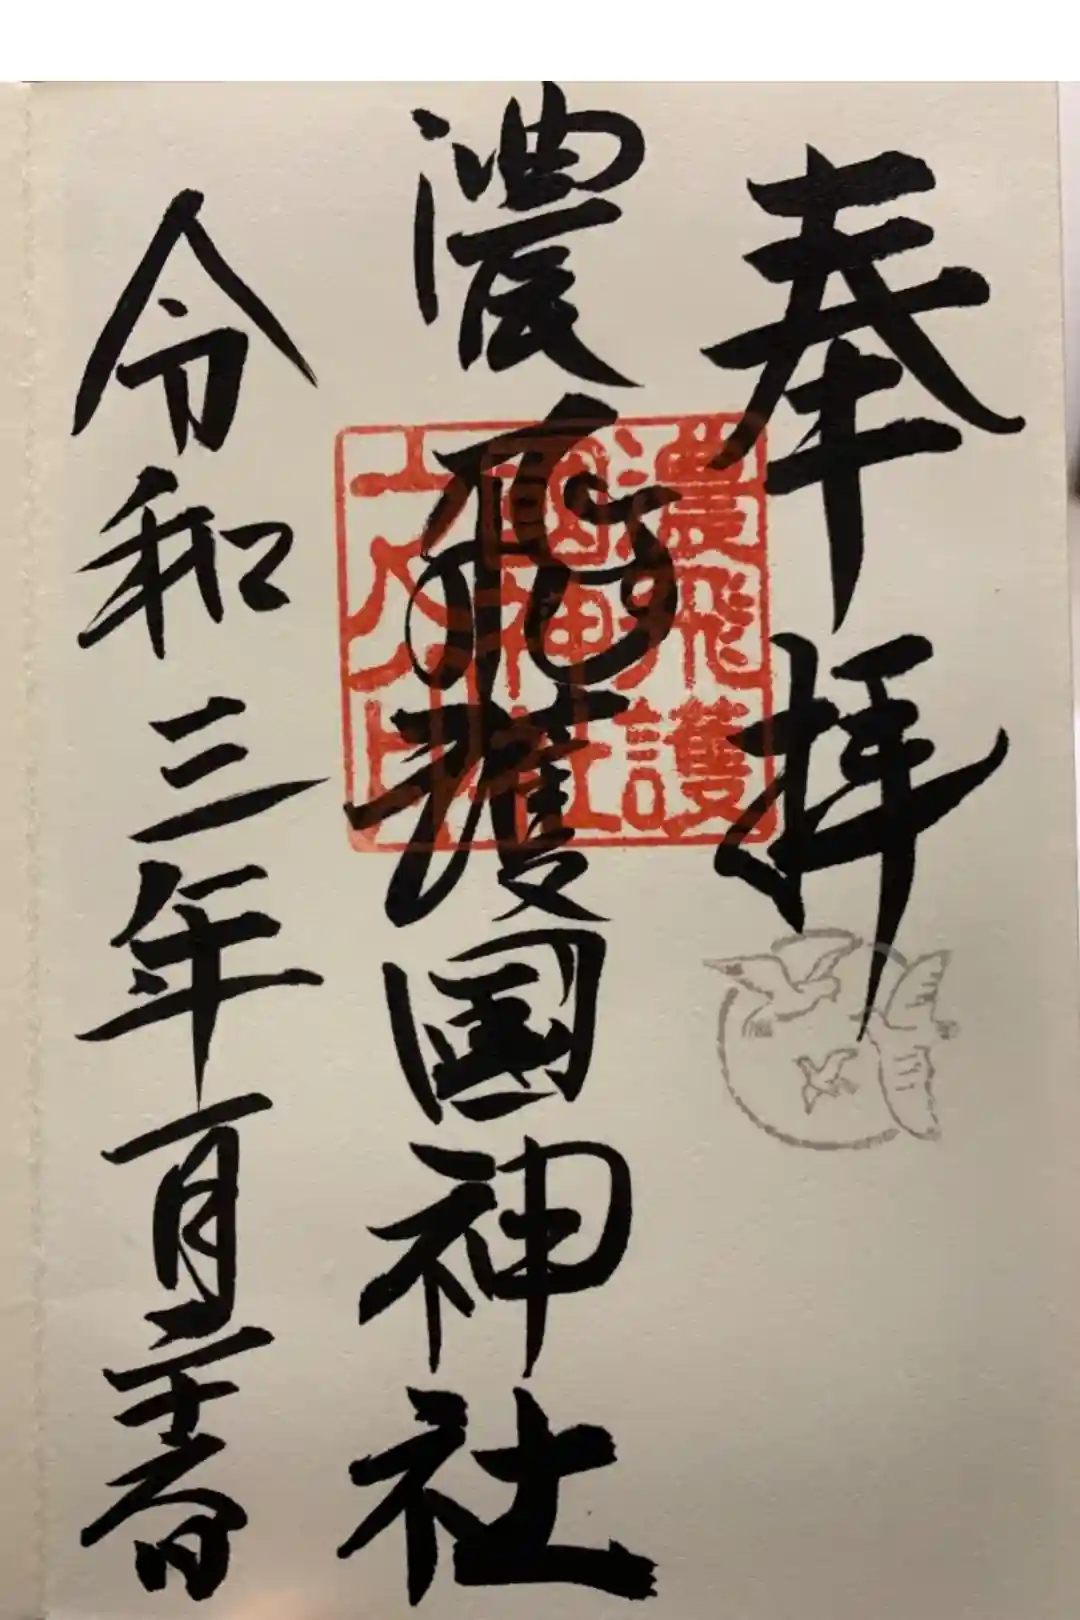 奉拝
濃飛護国神社
令和三年一月二十六日
濃飛護
國神社